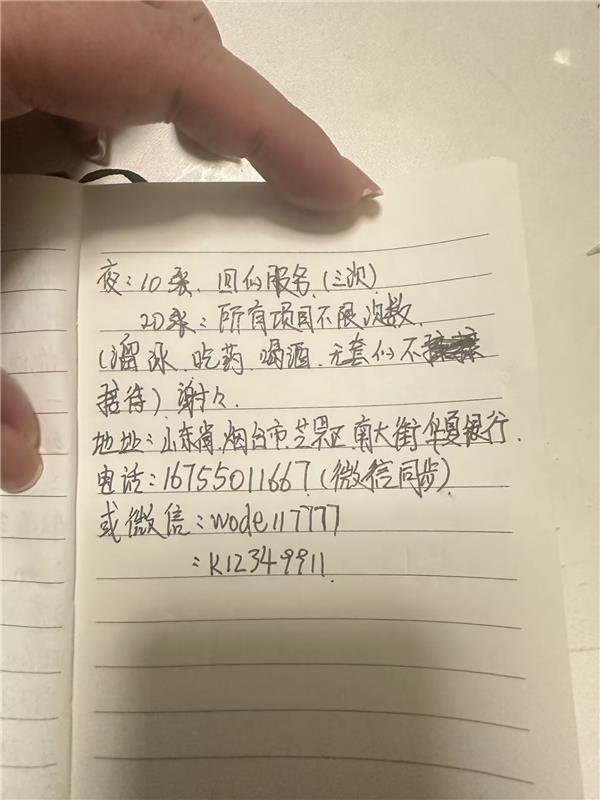 夜：10张．回的服务．(三次)
20张：所有项目不限次数．
(溜冰．吃药．喝酒．无套的不
接待)．谢々．
地址：山东省．烟台市．芝罘区．南大街华夏银行．
电话：16755011667．(微信同步)
或微信：wode117777
：k12349911．